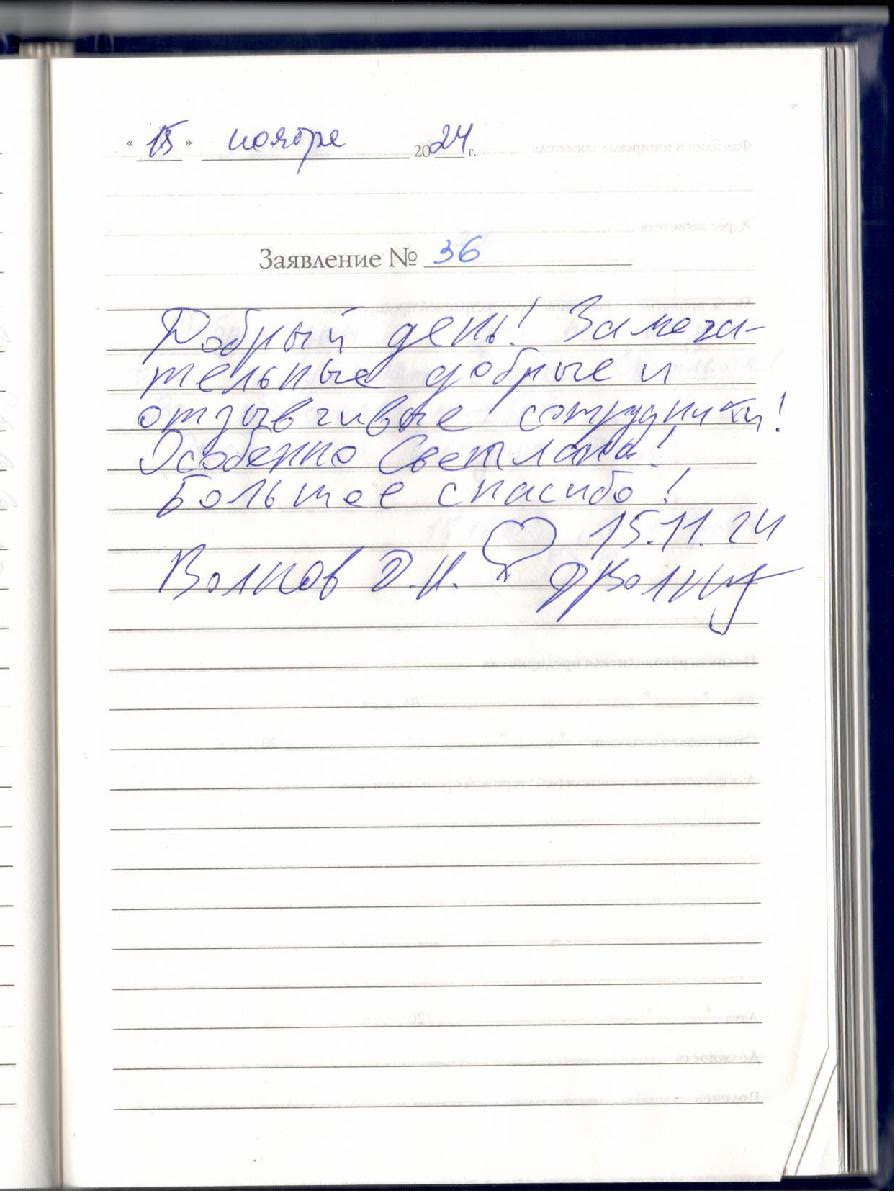 « 15 » ноября 2024 г.
Заявление № 36
Добрый день! Замеча-
тельные добрые и
отзывчивые сотрудники!
Особенно Светлана!
Большое спасибо!
15.11.24
Волков Д.Н.